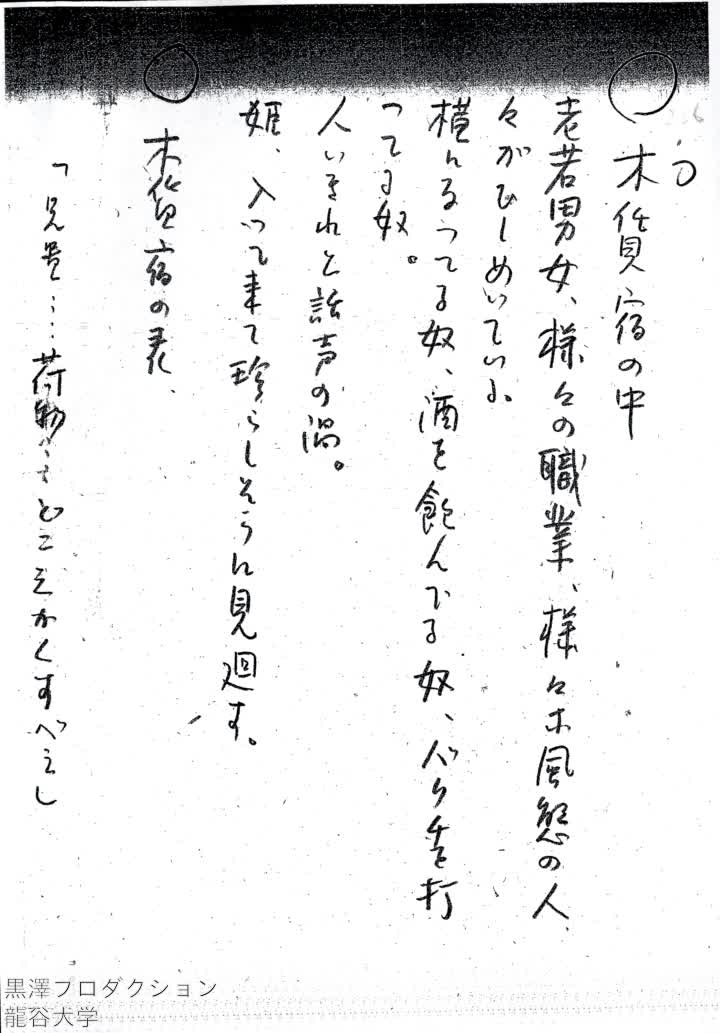 木賃宿の中
老若男女、様々の職業、様々な風態の人
々がひしめいている。
横になってる奴、酒を飲んでる奴、バクチを打
ってる奴。
人いきれと話声の渦。
姫、入って来て珍らしそうに見廻す。
木賃宿の表、
「兄貴……荷物……どこさかくすべえ」
黒澤プロダクション
龍谷大学